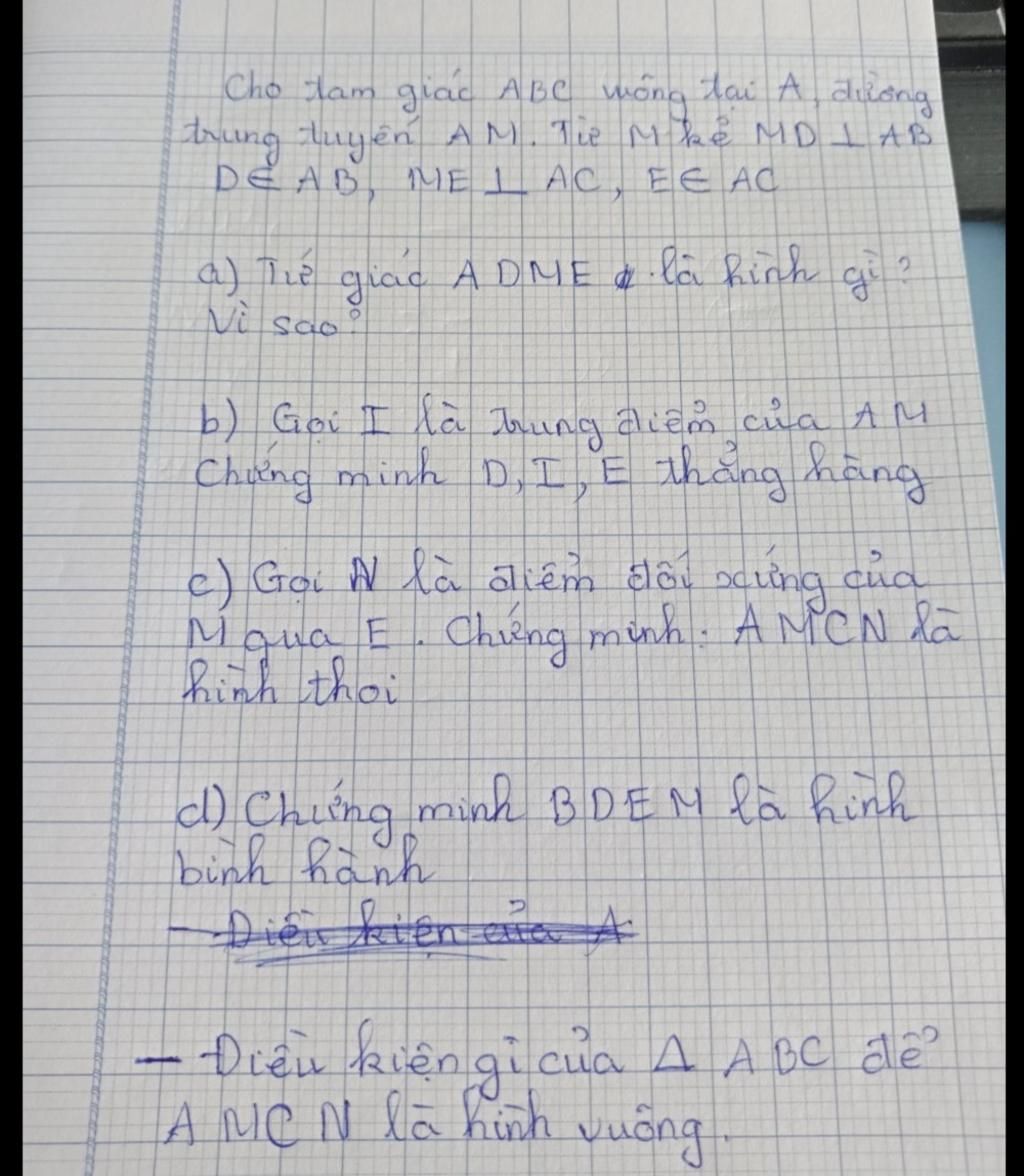 Cho tam giác ABC vuông tại A, đường
trung tuyến AM. Từ M kẻ MD ⊥ AB
D ∈ AB, ME ⊥ AC, E ∈ AC
a) Tứ giác ADME là hình gì?
Vì sao?
b) Gọi I là trung điểm của AM
Chứng minh D, I, E thẳng hàng
c) Gọi N là điểm đối xứng của
M qua E. Chứng minh: AMCN là
hình thoi
d) Chứng minh BDEM là hình
bình hành
- Điều kiện của A
- Điều kiện gì của Δ ABC để
AMCN là hình vuông.